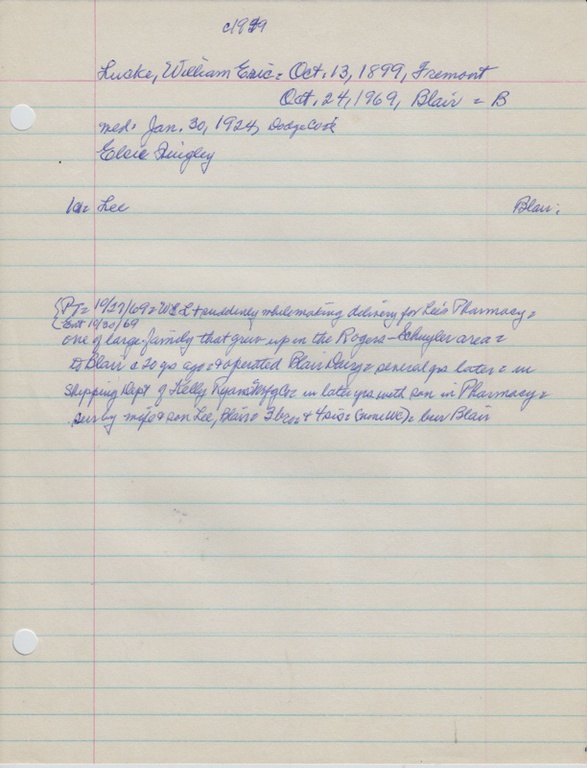 c1949
Luske, William Eric = Oct. 13, 1899, Fremont
Oct. 24, 1969, Blair = B
med: Jan. 30, 1924, Dodge Co
Elsie
1 a = Lee Blair;
PT = 10/27/69 = W E L + suddenly while making delivery for Lee's Pharmacy =
Ent 10/30/69
one of large family that grew up in the Rogers - Schuyler area =
to Blair c 20 ys ago = + operated Blair Drug = several yrs later = in
shipping Dept of Kelly Ryans Mfg Co = in later yrs with son in Pharmacy =
sur by wife + son Lee, Blair = 3 + 4 sis = (none WC) = bur Blair